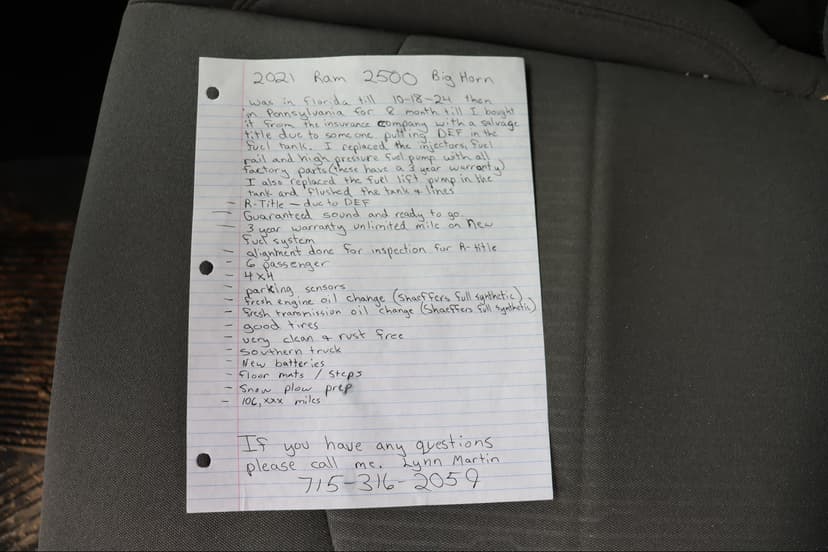 2021 Ram 2500 Big Horn
was in Florida till 10-18-24 then
in Pennsylvania for 2 month till I bought
it from the insurance company with a salvage
title due to some one putting DEF in the
fuel tank. I replaced the injectors, fuel
rail and high pressure fuel pump with all
factory parts (these have a 3 year warranty)
I also replaced the fuel lift pump in the
tank and flushed the tank & lines
- R-Title - due to DEF
- Guaranteed sound and ready to go
- 3 year warranty unlimited mile on New
fuel system
- alignment done for inspection for R-title
- 6 passenger
- 4x4
- parking sensors
- fresh engine oil change (Shaeffers full synthetic)
- fresh transmission oil change (Shaeffers full synthetic)
- good tires
- very clean & rust free
- southern truck
- New batteries
- floor mats / steps
- Snow plow prep
- 106,xxx miles
If you have any questions
please call me. Lynn Martin
715-316-2059